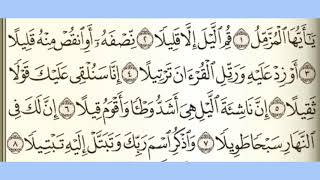 يَٰٓأَيُّهَا ٱلۡمُزَّمِّلُ ١ قُمِ ٱلَّيۡلَ إِلَّا قَلِيلٗا ٢ نِّصۡفَهُۥٓ أَوِ ٱنقُصۡ مِنۡهُ قَلِيلًا
٣ أَوۡ زِدۡ عَلَيۡهِ وَرَتِّلِ ٱلۡقُرۡءَانَ تَرۡتِيلًا ٤ إِنَّا سَنُلۡقِي عَلَيۡكَ قَوۡلٗا
ثَقِيلًا ٥ إِنَّ نَاشِئَةَ ٱلَّيۡلِ هِيَ أَشَدُّ وَطۡـٔٗا وَأَقۡوَمُ قِيلًا ٦ إِنَّ لَكَ فِي
ٱلنَّهَارِ سَبۡحٗا طَوِيلٗا ٧ وَٱذۡكُرِ ٱسۡمَ رَبِّكَ وَتَبَتَّلۡ إِلَيۡهِ تَبۡتِيلٗا ٨